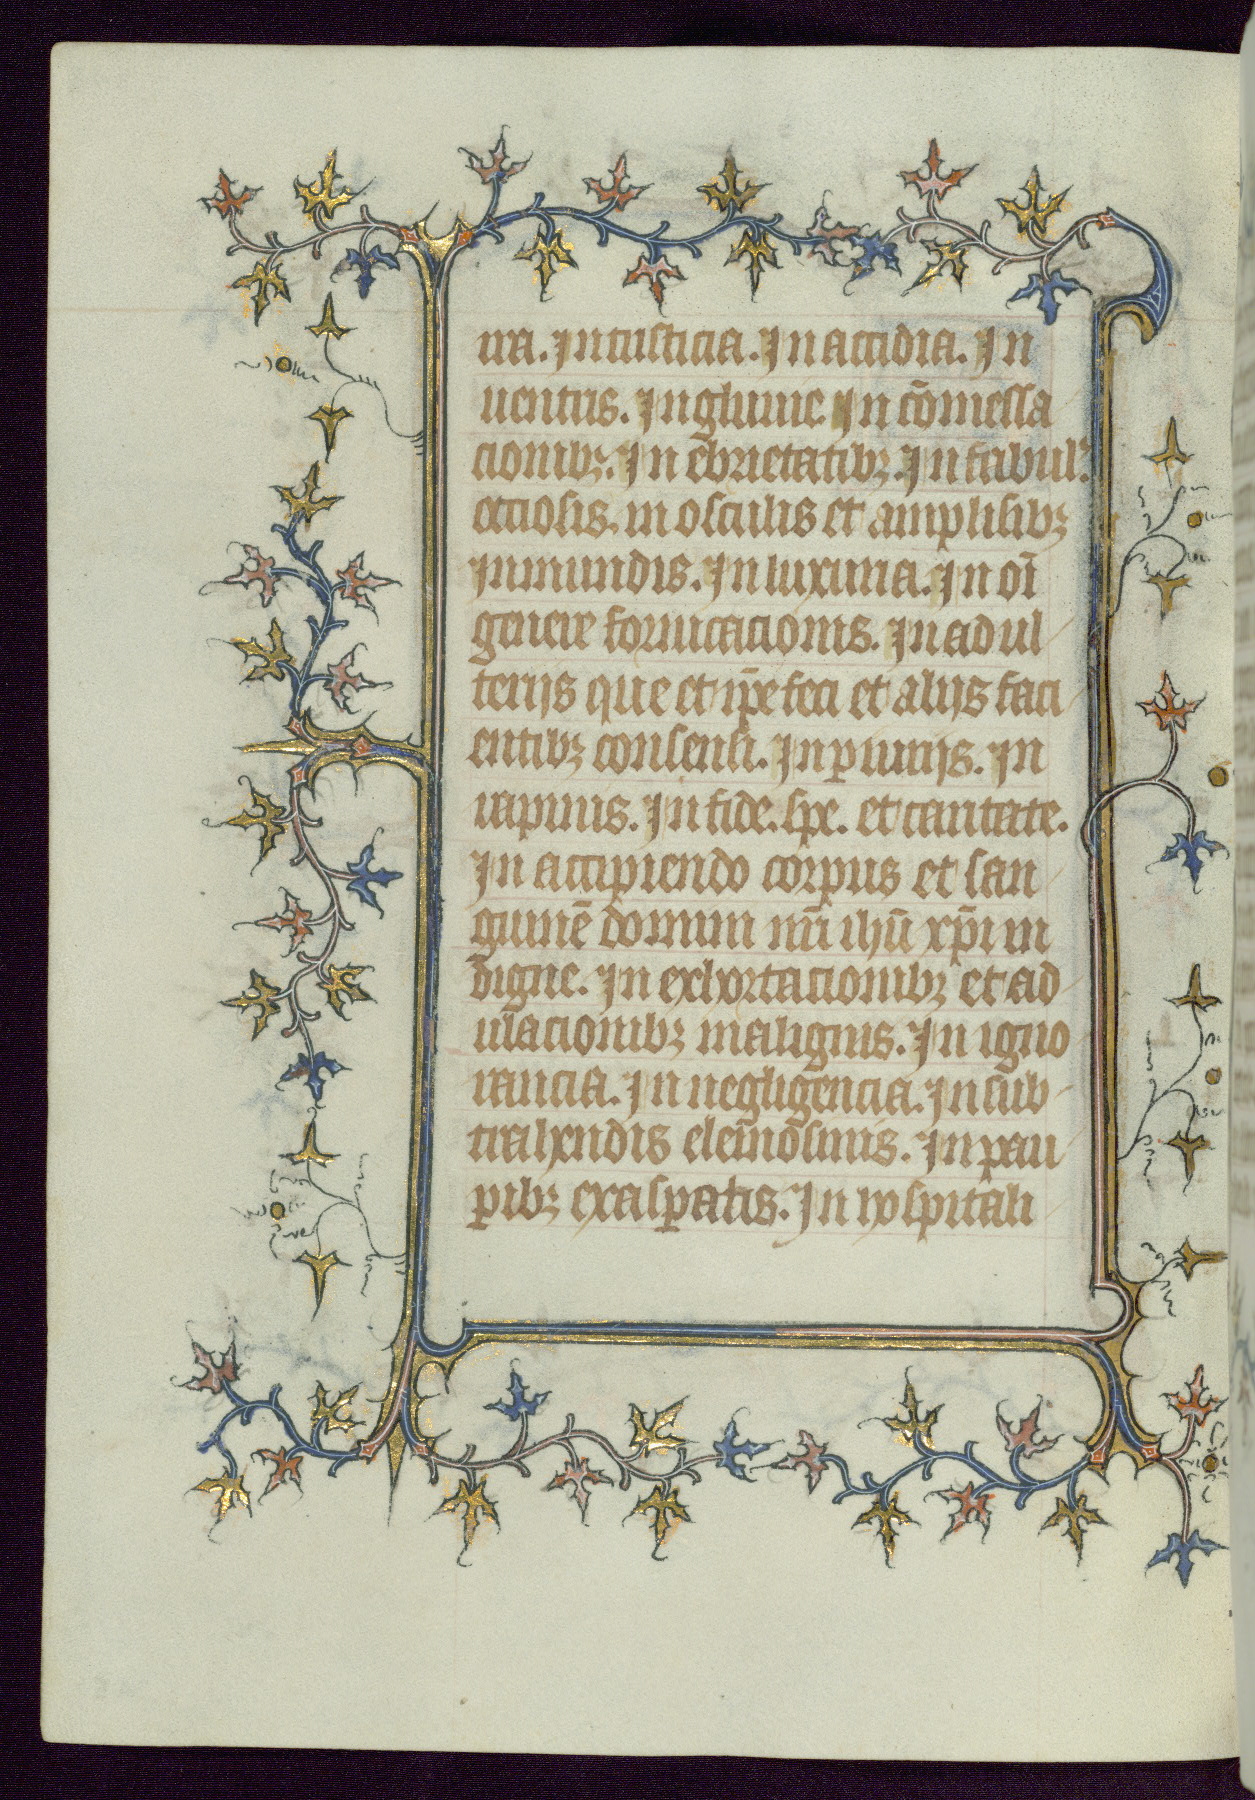 ira. In tristicia. In accidia. In
uentris. Ingluuie. In cōmessa
cionibꝫ. In ebrietatibꝫ. In fabul'
ociosis. in osculis et amplisibꝫ
Inmundis. In luxuria. In oı̄
genere fornicacionis. In adul
terijs que et ip̄e feci et alijs faci
entibꝫ consensi. In ꝑiurijs. In
rapinis. In fide. spe. et caritate.
In accipiendo corpus et san
guinē domini nr̄i ihū xp̄i in
digne. In exhortacionibꝫ et ad
ul̄acionibꝫ malignis. In igno
rancia. In negligencia. In sub
trahendis elem̄osinis. In pau
ꝑibꝫ exasꝑatis. In hospitali